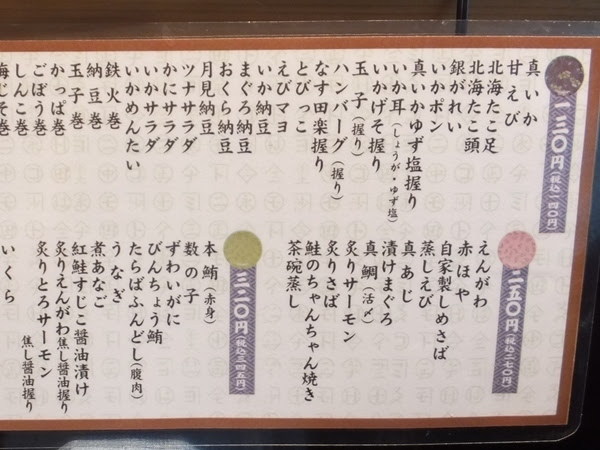 一三〇円(税込一四〇円)
真いか
甘えび
北海たこ足
北海たこ頭
銀がれい
いかポン
真いかゆず塩握り
いか耳(しょうが・ゆず塩)
いかげそ握り
玉子(握り)
ハンバーグ(握り)
なす田楽握り
とびっこ
えびマヨ
いか納豆
まぐろ納豆
おくら納豆
月見納豆
ツナサラダ
かにサラダ
いかサラダ
いかめんたい
鉄火巻
納豆巻
玉子巻
かっぱ巻
ごぼう巻
しんこ巻
梅じそ巻
二五〇円(税込二七〇円)
えんがわ
赤ほや
自家製しめさば
蒸しえび
真あじ
漬けまぐろ
真鯛(活〆)
炙りサーモン
炙りさば
鮭のちゃんちゃん焼き
茶碗蒸し
三二〇円(税込三四五円)
本鮪(赤身)
数の子
ずわいがに
びんちょう鮪
たらばふんどし(腹肉)
うなぎ
煮あなご
紅鮭すじこ醤油漬け
炙りえんがわ焦し醤油握り
炙りとろサーモン焦し醤油握り
いくら